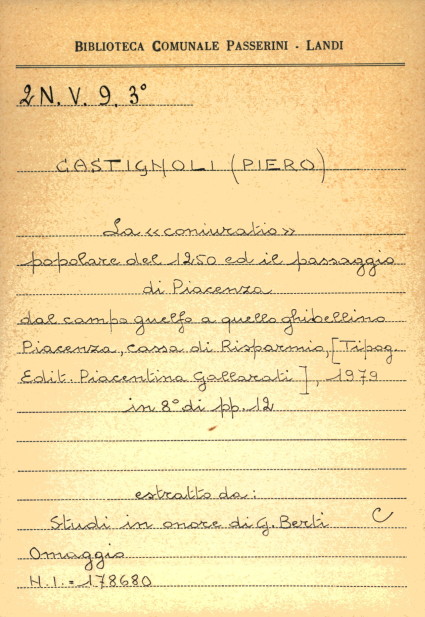 BIBLIOTECA COMUNALE PASSERINI - LANDI
2N. V. 9. 3°
CASTIGNOLI (PIERO)
La «coniuratio»
popolare del 1250 ed il passaggio
di Piacenza
dal campo guelfo a quello ghibellino
Piacenza, cassa di Risparmio, [Tipog.
Edit. Piacentina Gallarati], 1979
in 8° di pp. 12
estratto da:
Studi in onore di G. Berti
C
Omaggio
N.I. = 178680